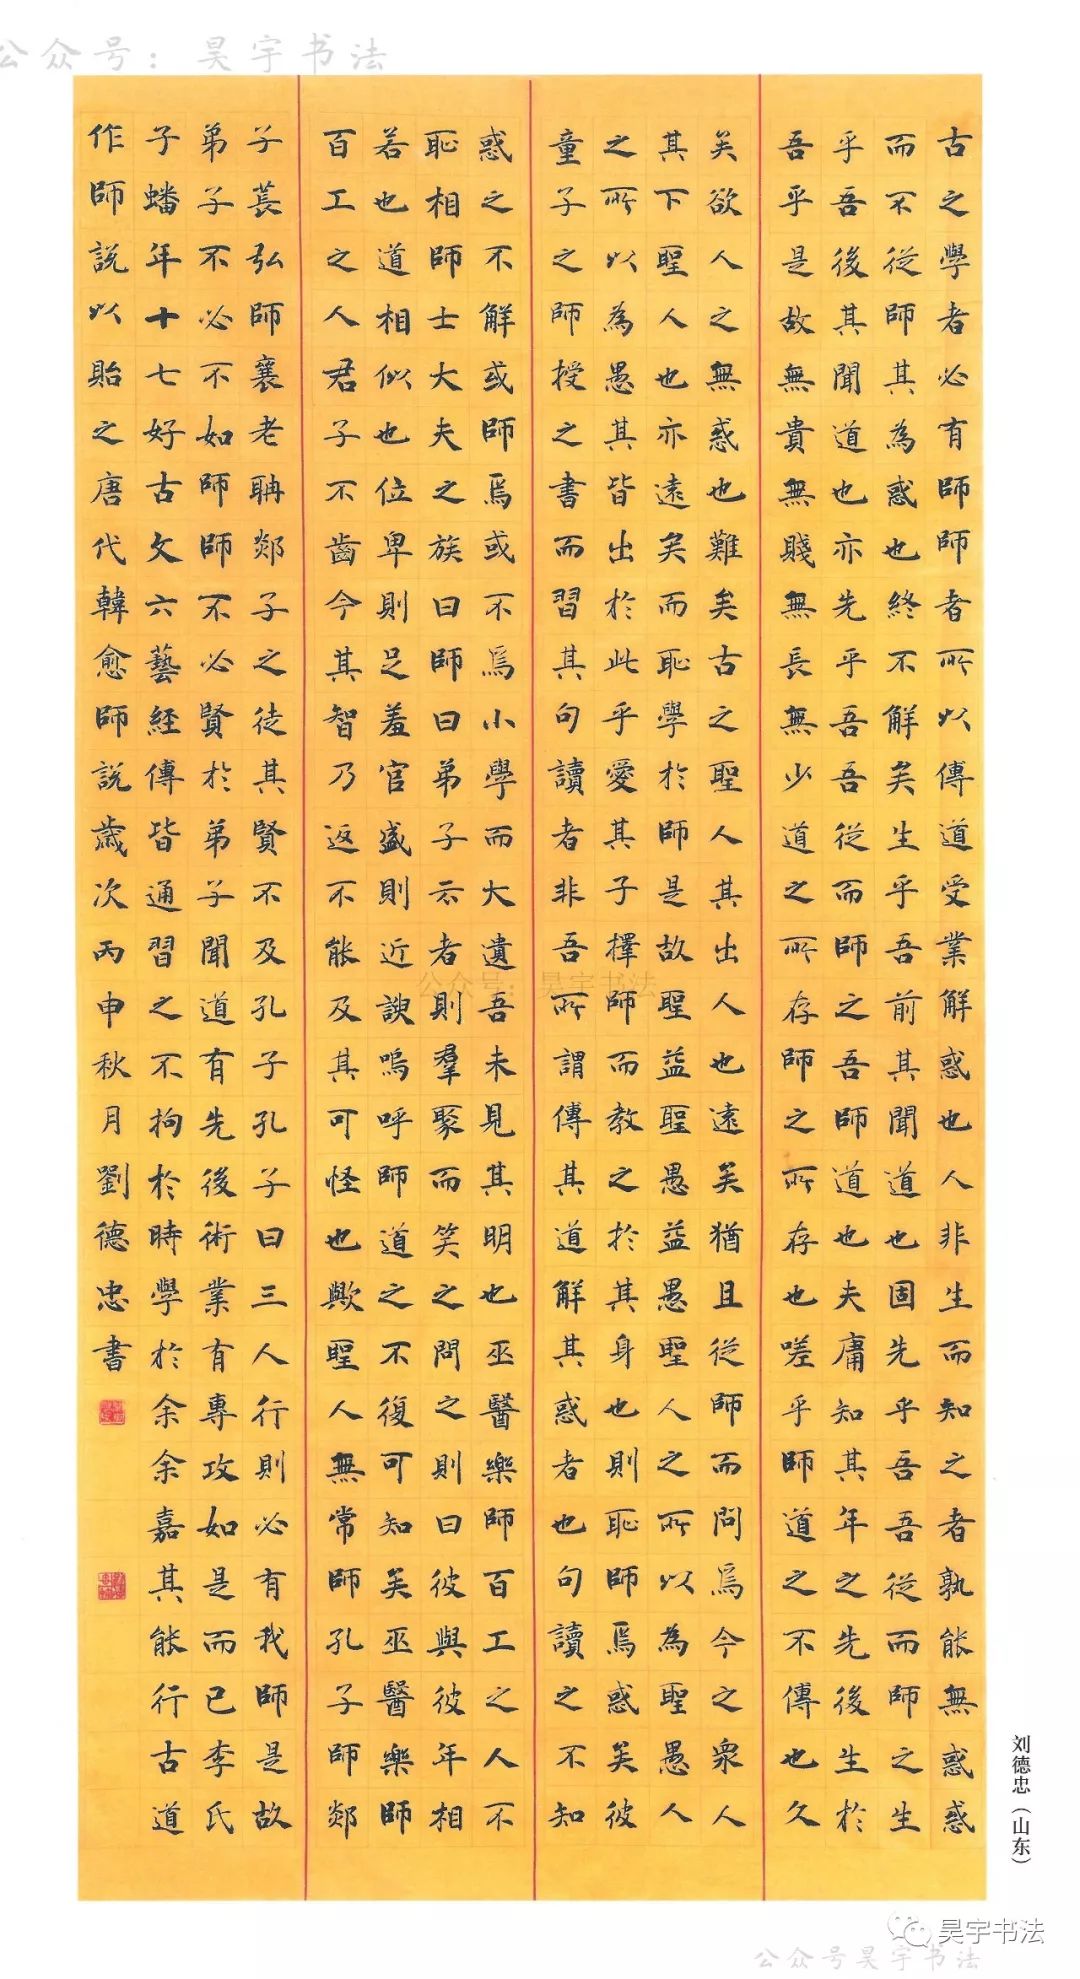 公众号：昊宇书法
古之學者必有師師者所以傳道受業解惑也人非生而知之者孰能無惑惑
而不從師其為惑也終不解矣生乎吾前其聞道也固先乎吾吾從而師之生
乎吾後其聞道也亦先乎吾吾從而師之吾師道也夫庸知其年之先後生於
吾乎是故無貴無賤無長無少道之所存師之所存也嗟乎師道之不傳也久
矣欲人之無惑也難矣古之聖人其出人也遠矣猶且從師而問焉今之眾人
其下聖人也亦遠矣而恥學於師是故聖益聖愚益愚聖人之所以為聖愚人
之所以為愚其皆出於此乎愛其子擇師而教之於其身也則恥師焉惑矣彼
童子之師授之書而習其句讀者非吾所謂傳其道解其惑者也句讀之不知
惑之不解或師焉或不焉小學而大遺吾未見其明也巫醫樂師百工之人不
恥相師士大夫之族曰師曰弟子云者則羣聚而笑之問之則曰彼與彼年相
若也道相似也位卑則足羞官盛則近諛嗚呼師道之不復可知矣巫醫樂師
百工之人君子不齒今其智乃返不能及其可怪也歟聖人無常師孔子師郯
子萇弘師襄老聃郯子之徒其賢不及孔子孔子曰三人行則必有我師是故
弟子不必不如師師不必賢於弟子聞道有先後術業有專攻如是而已李氏
子蟠年十七好古文六藝經傳皆通習之不拘於時學於余余嘉其能行古道
作師說以貽之唐代韓愈師說歲次丙申秋月劉德忠書
公众号：昊宇书法
刘德忠（山东）
昊宇书法
公众号昊宇书法